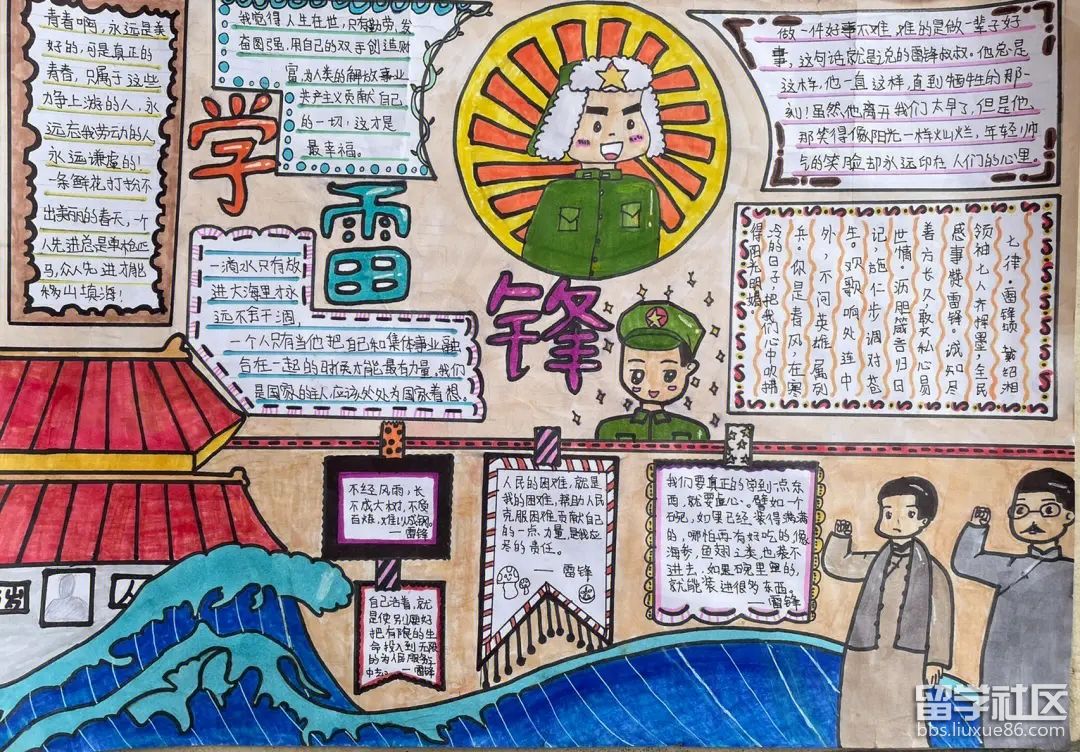 青春啊,永远是美
好的,可是真正的
青春,只属于这些
力争上游的人,永
远忘我劳动的人
永远谦虚的!
一条鲜花打扮不
出美丽的春天,一个
人先进总是单枪匹
马,众人先进才能
移山填海!
我觉得人生在世,只有勤劳,发
奋图强,用自己的双手创造财
富,为人类的解放事业
共产主义贡献自己
的一切,这才是
最幸福。
做一件好事不难,难的是做一辈子好
事,这句话就是说的雷锋叔叔。他总是
这样,他一直这样,直到牺牲的那一
刻!虽然他离开我们太早了,但是他
那笑得像阳光一样灿烂,年轻,帅
气的笑脸却永远印在人们的心里。
学
雷
锋
一滴水只有放
进大海里才永
远不会干涸,
一个人只有当他把自己和集体事业融
合在一起的时候才能最有力量,我们
是国家的主人应该处处为国家着想
七律·雷锋颂
领袖七人齐挥墨,全民
感事赞雷锋。诚知尽
善方长久,敢效私心员
世情。沥胆箴告归日
记,施仁步调对苍
生。欢歌响处连中
外,不问英雄属列
兵。你是春风,在寒
冷的日子,把我们心中吹拂
得阳光明媚。
不经风雨,长
不成大树,不受
百炼,难以成钢。
—雷锋
人民的困难,就是
我的困难,帮助人民
克服困难,贡献自己
的一点力量,是我应
尽的责任。
——雷锋
我们要真正的学到一点东
西,就要虚心。譬如一个
碗,如果已经装得满满
的,哪怕再有好吃的像
海参,鱼翅之类也装不
进去,如果碗里是空的,
就能装进很多东西。
——雷锋
自己活着,就
是使别人更好
把有限的生
命投入到无限
的为人民服务
中去。—雷锋
留学社区
bbs.liuxue86.com